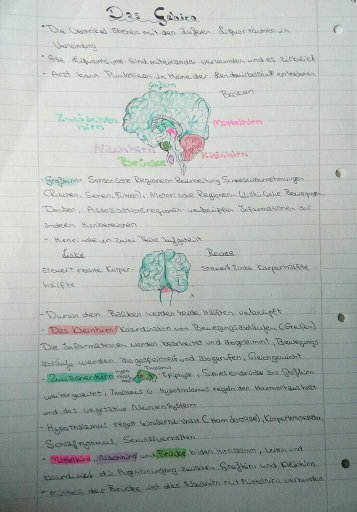 Das Gehirn
- Die Ventrikel stehen mit den äußeren Liquorräumen in
Verbindung
- Alle Liquorräume sind miteinander verbunden und es zirkuliert
- Arzt kann Punktieren in Höhe der Lendenwirbelsäule entnehmen
Großhirn
Balken
Zwischenhirn
Mittelhirn
Nachhirn
Brücke
Kleinhirn
Großhirn- Sensorische Regionen- Bearbeitung Sinneswahrnehmungen
(Riechen, Sehen, Fühlen), Motorische Regionen- Willkürliche Bewegungen,
Denken, Assoziationsregionen- verknüpfen Informationen aus
anderen Hirnbereichen
- Hirnrinde in zwei Teile aufgeteilt
Linke
Rechte
steuert rechte Körperhälfte
steuert linke Körperhälfte
- Durch den Balken werden beide Hälften verknüpft
- Das Kleinhirn: Koordination von Bewegungsabläufen (Greifen)
Die Informationen werden bearbeitet und abgestimmt, Bewegungs-
abläufe werden abgespeichert und abgerufen, Gleichgewicht
Zwischenhirn
Thalamus
Epiphyse, Sinneseindrücke ans Großhirn
weitergeleitet, Thalamus u. Hypothalamus regeln den Hormonhaushalt
und das vegetative Nervensystem
- Hypothalamus regelt Wasserhaushalt (Homöostase), Körpertemperatur,
Schlafrhythmus, Sexualverhalten
- Mittelhirn, Nachhirn und Brücke bilden Hirnstamm, leiten und
koordiniert die Augenbewegung zwischen Großhirn und Kleinhirn
- Mittels der Brücke ist das Nachhirn mit Mittelhirn verbunden